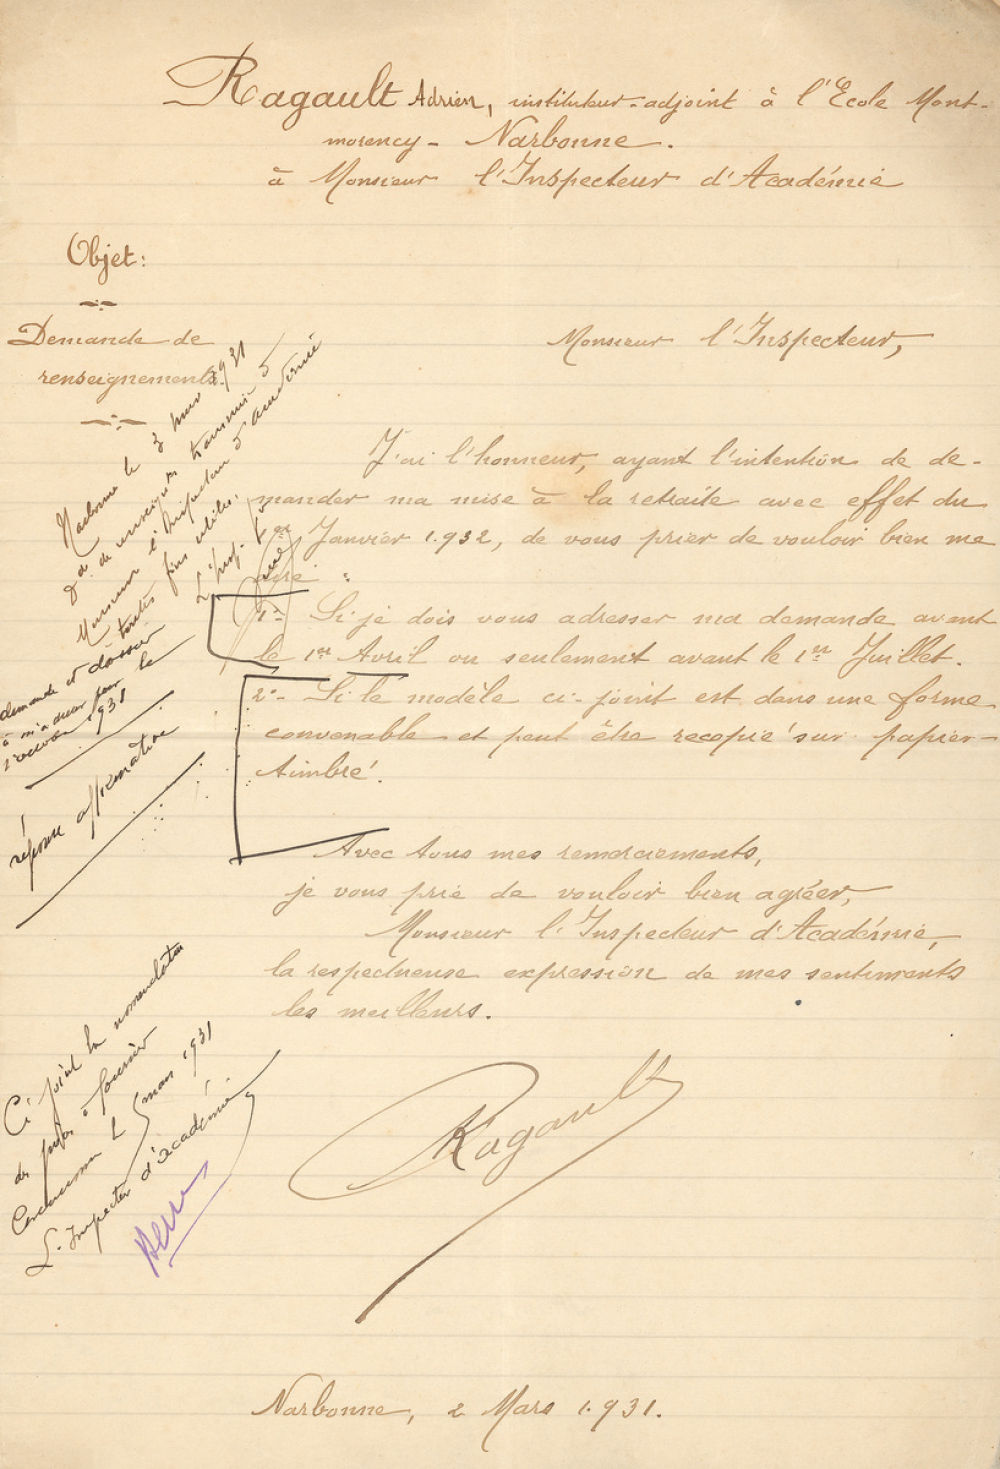 Ragault Adrien, instituteur-adjoint à l'École Mont-
morency - Narbonne.
à Monsieur l'Inspecteur d'Académie
Objet:
Demande de
renseignements.
Monsieur l'Inspecteur,
J'ai l'honneur, ayant l'intention de de-
mander ma mise à la retraite avec effet du
1er Janvier 1.932, de vous prier de vouloir bien me
dire :
1º- Si je dois vous adresser ma demande avant
le 1er Avril ou seulement avant le 1er Juillet.
2º- Si le modèle ci-joint est dans une forme
convenable et peut être recopié sur papier-
timbré.
Avec tous mes remerciements,
je vous prie de vouloir bien agréer,
Monsieur l'Inspecteur d'Académie,
la respectueuse expression de mes sentiments
les meilleurs.
Ragault
Narbonne, 2 Mars 1.931.
Narbonne le 3 mars 1931
de transmis à
Monsieur l'Inspecteur d'académie
toutes fins utiles.
L'Insp.
demande et dossier
à m'adresser pour le
1931
réponse affirmative
Ci joint la nomenclature
des pièces à fournir
Carcassonne le 5 mars 1931
L'Inspecteur d'académie